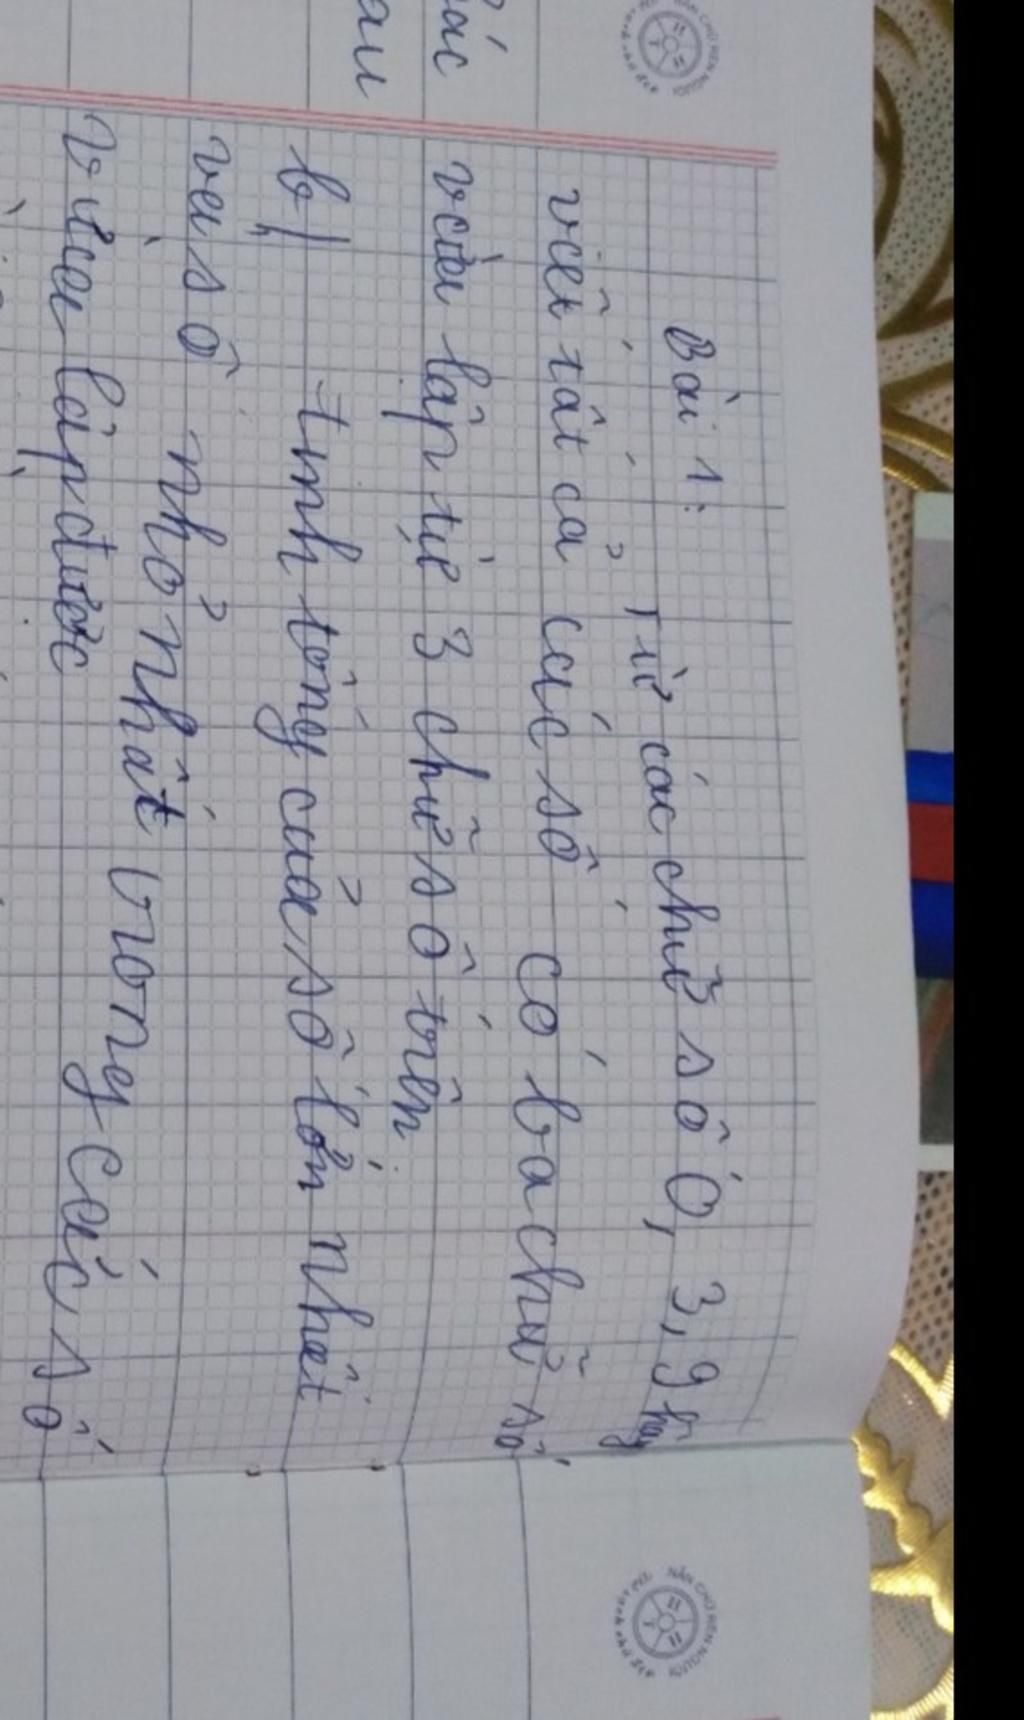 Bài 1: Từ các chữ số 0, 3, 9 hãy
viết tất cả các số có ba chữ số
vừa lập từ 3 chữ số trên
b/ tính tổng của số lớn nhất
và số nhỏ nhất trong các số
vừa lập được
ác
au